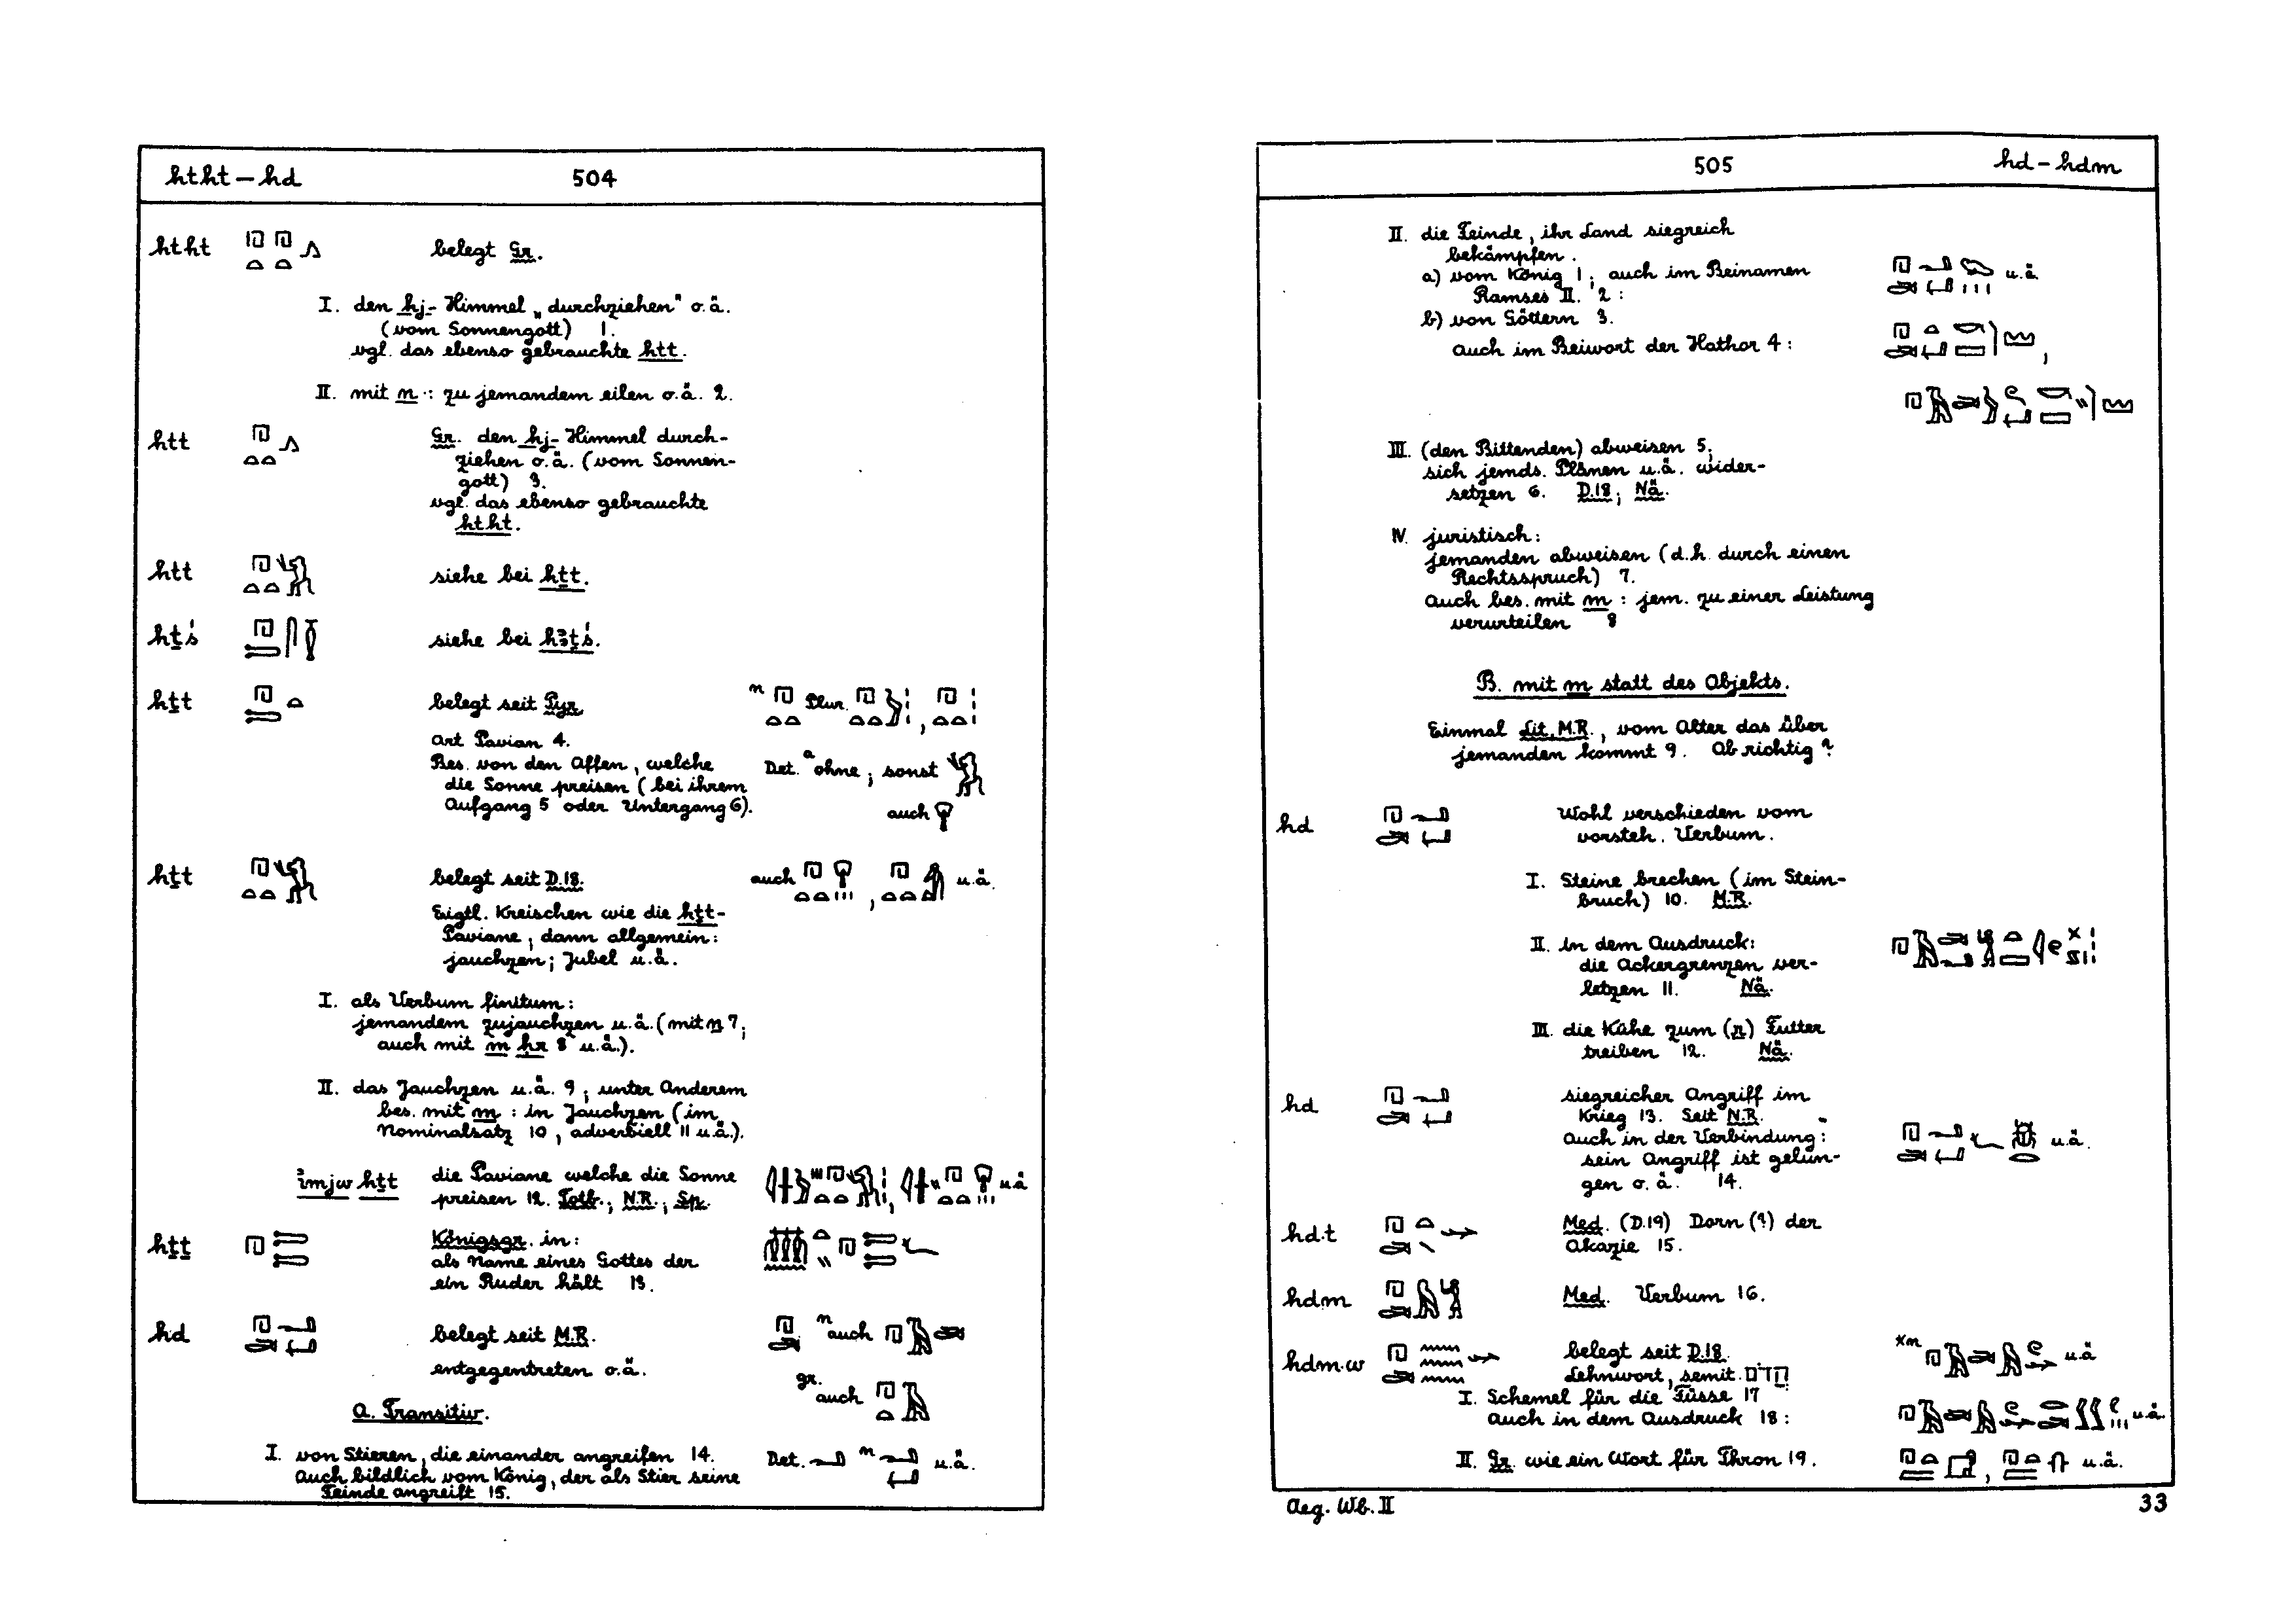 htht – hd 504
htht belegt Gr.
I. den hj- Himmel „durchziehen" o.ä.
(vom Sonnengott) 1.
vgl. das ebenso gebrauchte htt.
II. mit n : zu jemandem eilen o.ä. 2.
htt Gr. den hj- Himmel durch-
ziehen o.ä. (vom Sonnen-
gott) 3.
vgl. das ebenso gebrauchte
htht.
htt siehe bei hṯt.
hṯś siehe bei
hṯt belegt seit Pyr. n Plur.
Art Pavian 4.
Bes. von den Affen, welche Det. a ohne; sonst
die Sonne preisen (bei ihrem
Aufgang 5 oder Untergang 6). auch
hṯt belegt seit D.18. auch , u.ä.
Eigtl. Kreischen wie die hṯt-
Paviane, dann allgemein:
jauchzen; Jubel u.ä.
I. als Verbum finitum:
jemandem zujauchzen u.ä. (mit n 7;
auch mit m ḥr 8 u.ä.).
II. das Jauchzen u.ä. 9; unter Anderem
bes. mit m : in Jauchzen (im
Nominalsatz 10, adverbiell 11 u.ä.).
imjw hṯt die Paviane welche die Sonne
preisen 12. Totb., N.R., Sp. u.ä.
hṯṯ Königsgr. in:
als Name eines Gottes der
ein Ruder hält 13.
hd belegt seit M.R. n auch
entgegentreten o.ä.
gr. auch
A. Transitiv.
I. von Stieren, die einander angreifen 14. Det. n u.ä.
Auch bildlich vom König, der als Stier seine
Feinde angreift 15.
505 hd – hdm
II. die Feinde, ihr Land siegreich
bekämpfen.
a) vom König 1; auch im Beinamen u.ä.
Ramses II. 2:
b) von Göttern 3.
auch im Beiwort der Hathor 4:
III. (den Bittenden) abweisen 5;
sich jemds. Plänen u.ä. wider-
setzen 6. D.18; Nä.
IV. juristisch:
jemanden abweisen (d.h. durch einen
Rechtsspruch) 7.
Auch bes. mit m : jem. zu einer Leistung
verurteilen 8
B. mit m statt des Objekts.
Einmal Lit. M.R., vom Alter das über
jemanden kommt 9. Ob richtig?
hd Wohl verschieden vom
vorsteh. Verbum.
I. Steine brechen (im Stein-
bruch) 10. M.R.
II. in dem Ausdruck:
die Ackergrenzen ver-
letzen 11. Nä.
III. die Kühe zum (r) Futter
treiben 12. Nä.
hd siegreicher Angriff im
Krieg 13. Seit N.R.
Auch in der Verbindung: u.ä.
sein Angriff ist gelun-
gen o.ä. 14.
hd.t Med. (D.19) Dorn (?) der
Akazie 15.
hdm Med. Verbum 16.
hdm.w belegt seit D.18. u.ä
Lehnwort, semit. הדם
I. Schemel für die Füsse 17
auch in dem Ausdruck 18: u.ä.
II. Gr. wie ein Wort für Thron 19. , u.ä.
Aeg. Wb. II 33